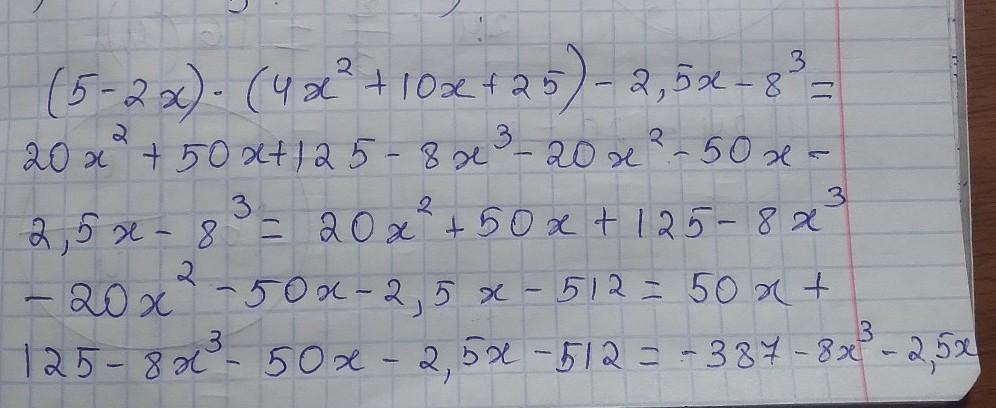 (5-2x)·(4x²+10x+25)-2,5x-8³=
20x²+50x+125-8x³-20x²-50x-
2,5x-8³=20x²+50x+125-8x³
-20x²-50x-2,5x-512=50x+
125-8x³-50x-2,5x-512=-387-8x³-2,5x